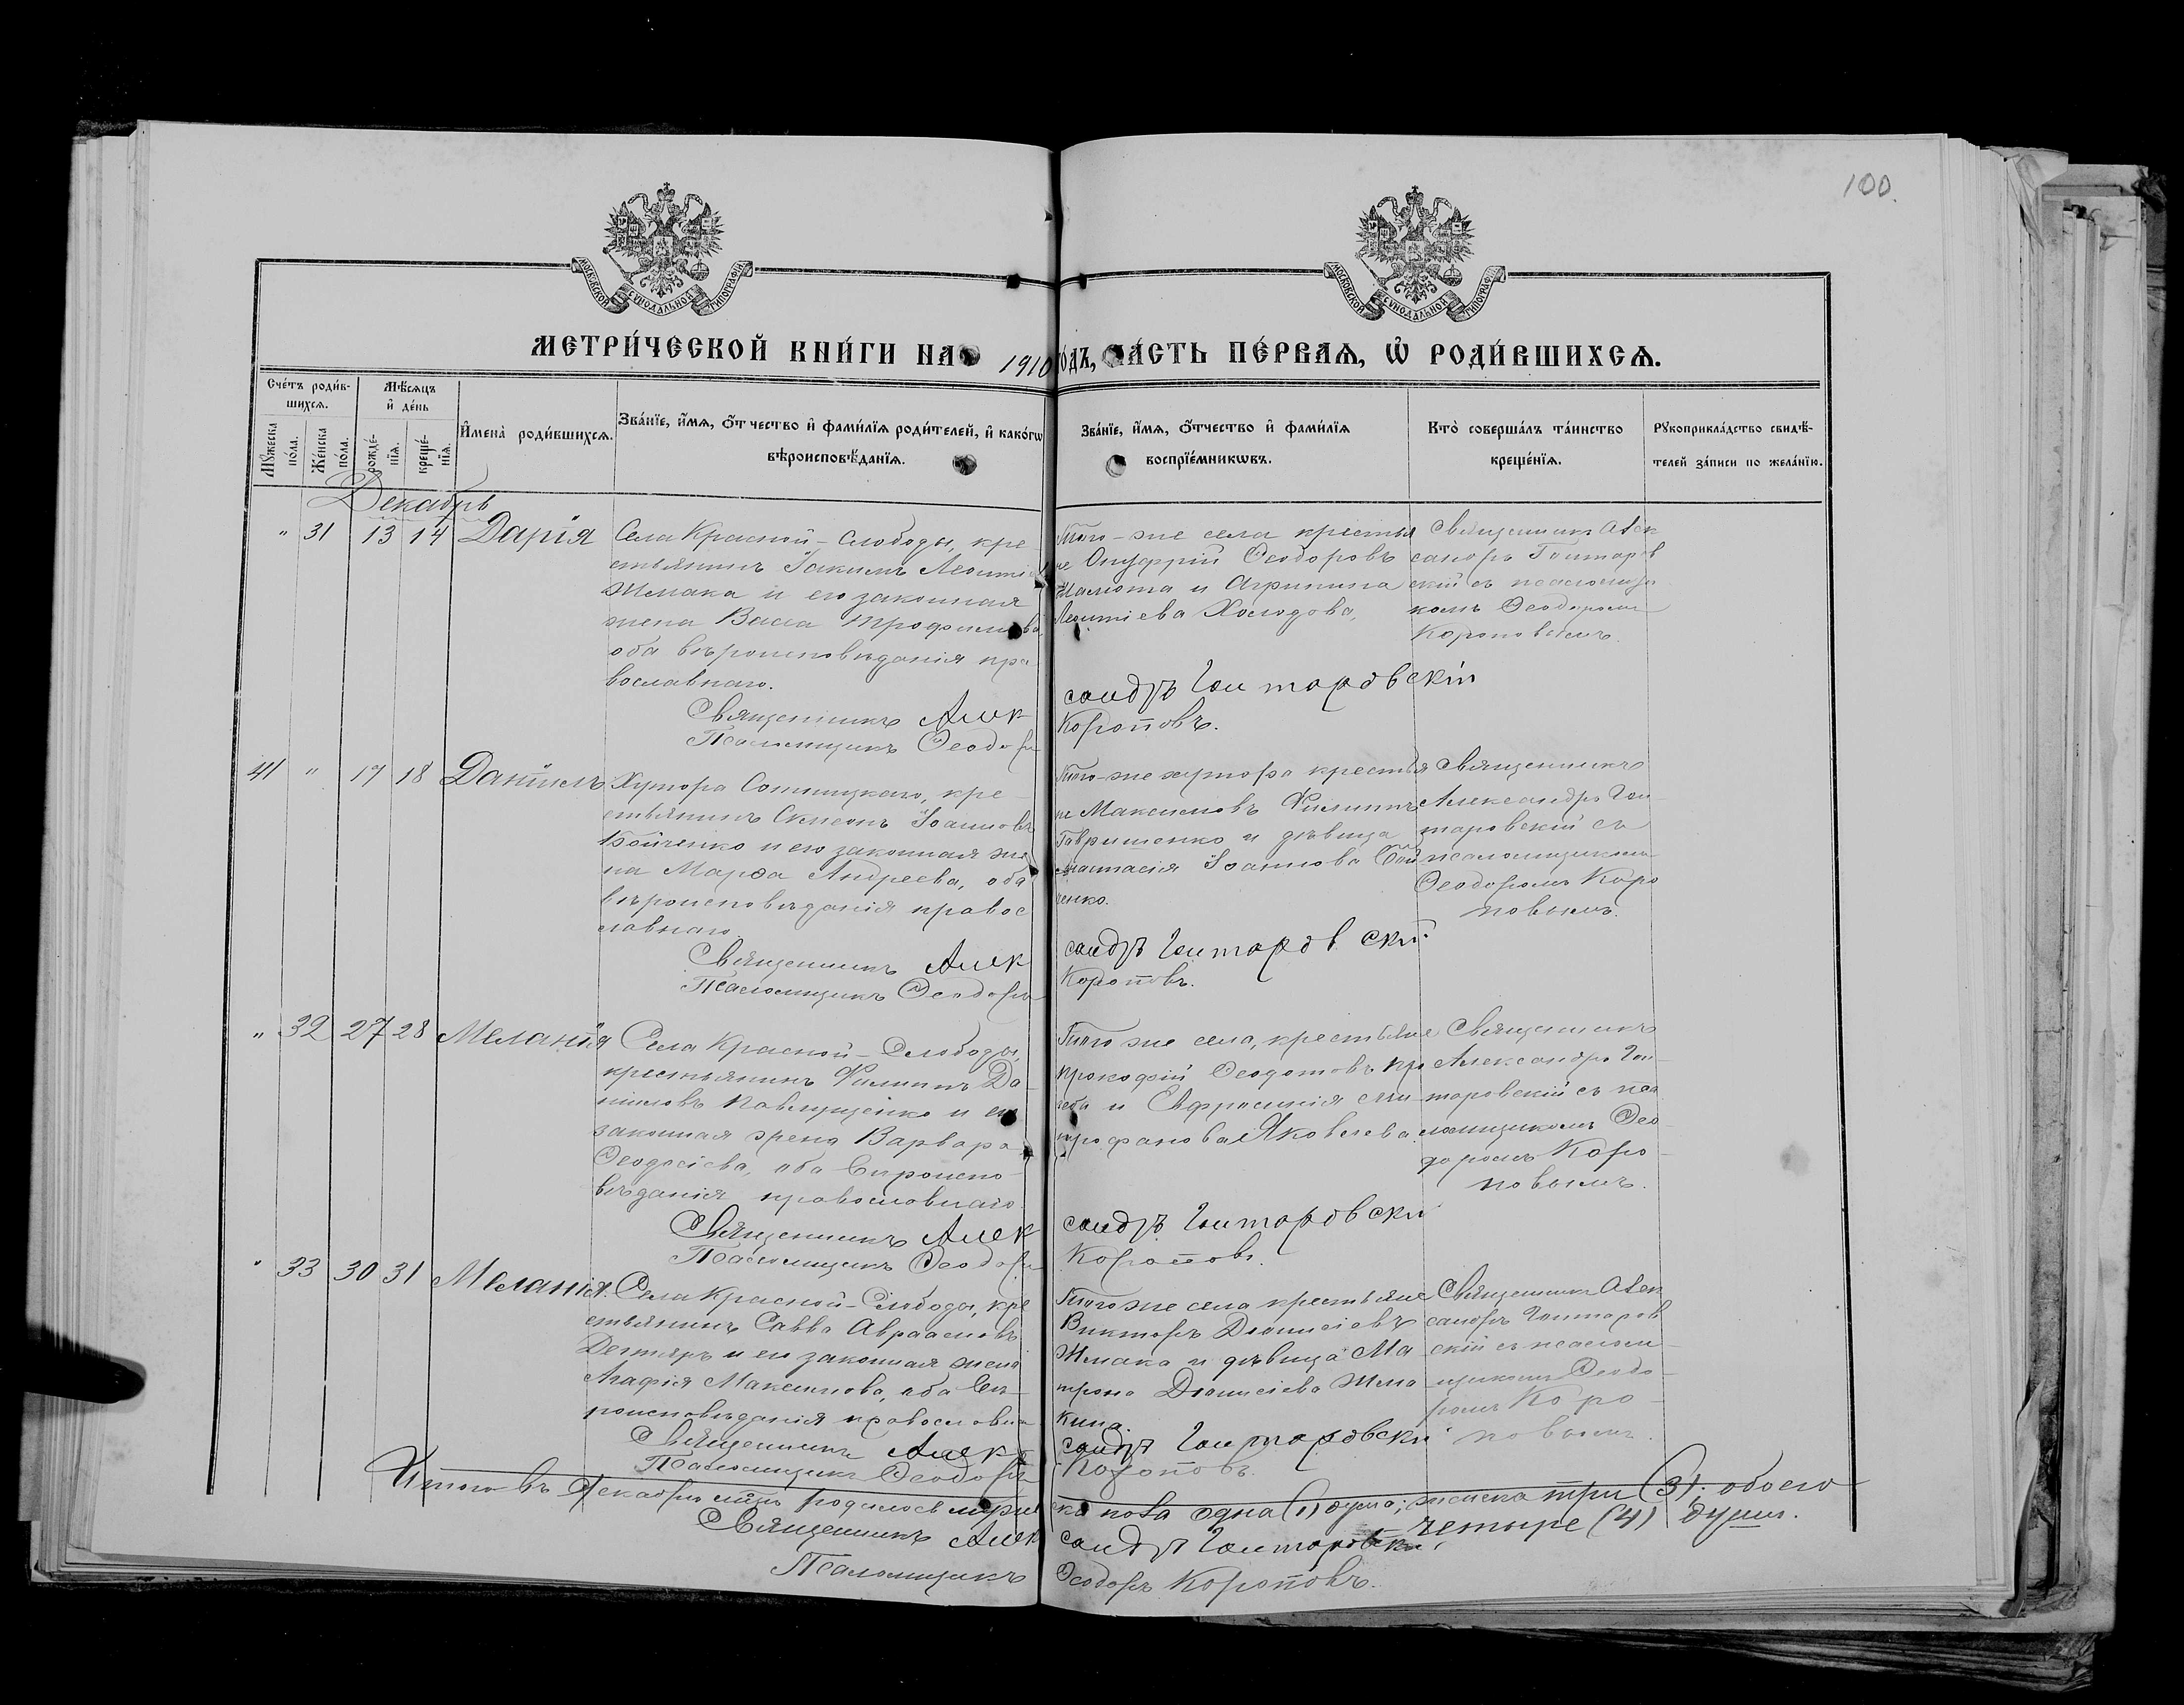 100.
МОСКОВСКОЙ СѴНОДАЛЬНОЙ ТИПОГРАФІИ
МОСКОВСКОЙ СѴНОДАЛЬНОЙ ТИПОГРАФІИ
МЕТРИ́ЧЕСКОЙ КНИ́ГИ НА 1910 ГО́ДЪ, ЧА́СТЬ ПЕ́РВАѦ, Ѡ҆ РОДИ́ВШИХСѦ.
Сче́тъ роди́в-
шихсѧ.
Мꙋ́жеска по́ла.
Же́нска по́ла.
Мѣ́сѧцъ
и҆ де́нь
рожде́-нїѧ.
креще́-нїѧ.
И҆мена̀ роди́вшихсѧ.
Зва́нїе, и҆́мѧ, ѻ҆́тчество и҆ фами́лїѧ роди́телей, и҆ како́гѡ
вѣроисповѣ́данїѧ.
Зва́нїе, и҆́мѧ, ѻ҆́тчество и҆ фами́лїѧ
воспрїе́мникѡвъ.
Кто̀ соверша́лъ та́инство
креще́нїѧ.
Рꙋкоприкла́дство свидѣ́-
телей за́писи по жела́нїю.
Декабрь
" 31 13 14 Дарія
Села Красной-Слободы, кре-
стьянинъ Іакимъ Леонтіев
Жмака и его законная
жена Васса Трофимова,
оба вѣроисповѣданія пра-
вославнаго.
Священникъ Алек
Псаломщикъ Ѳеодоръ
Того-же села крестья
не Онуфрій Ѳеодоровъ
и Агрипина
Леонтіева Холодова,
сандръ Гонторовскій
Короповъ.
Священникъ Алек
сандръ Гонторов
скій съ псаломщи
комъ Ѳеодоромъ
Короповымъ.
41 " 17 18 Даніилъ
Хутора Сотницкаго, кре-
стьянинъ Симеонъ Іоанновъ
Бойченко и его законная же
на Марѳа Андреева, оба
вѣроисповѣданія правос
лавнаго.
Священникъ Алек
Псаломщикъ Ѳеодоръ
Того-же хутора крестья
не Максимовъ Филиппъ
Гавришенко и дѣвица
Анастасія Іоаннова Бой
ченко.
сандръ Гонторовскій
Короповъ.
Священникъ
Александръ Гон-
торовскій съ
псаломщикомъ
Ѳеодоромъ Коро
повымъ.
" 32 27 28 Меланія
Села Красной-Слободы,
крестьянинъ Филиппъ Да-
ниловъ Павлущенко и его
законная жена Варвара
Ѳеодосіева, оба вѣроиспо-
вѣданія православнаго.
Священникъ Алек
Псаломщикъ Ѳеодоръ
Того же села, крестьяне
Прокофій Ѳеодотовъ
и Евфросинія Ми
трофанова Яковлева.
сандръ Гонторовскій
Короповъ.
Священникъ
Александръ Гон-
торовскій съ пса
ломщикомъ Ѳео-
доромъ Коро
повымъ.
" 33 30 31 Меланія.
Села Красной-Слободы, кре
стьянинъ Савва Авраамовъ
Дегтяръ и его законная жена
Агафія Максимова, оба вѣ-
роисповѣданія православна
Священникъ Алек
Псаломщикъ Ѳеодоръ
Того же села крестьяне
Викторъ Діонисіевъ
Жмака и дѣвица Ма
трона Діонисіева Жма
кина.
сандръ Гонторовскій
Короповъ.
Священникъ Алек
сандръ Гонторов
скій съ псалом-
щикомъ Ѳеодо-
ромъ Коро-
повымъ.
Итого въ Декабрѣ мцѣ родилось мужес
ка пола одна (1) душа; женска три (3); обоего
четыре (4) душъ.
Священникъ Алек
сандръ Гонторовскій
Псаломщикъ
Ѳеодоръ Короповъ.